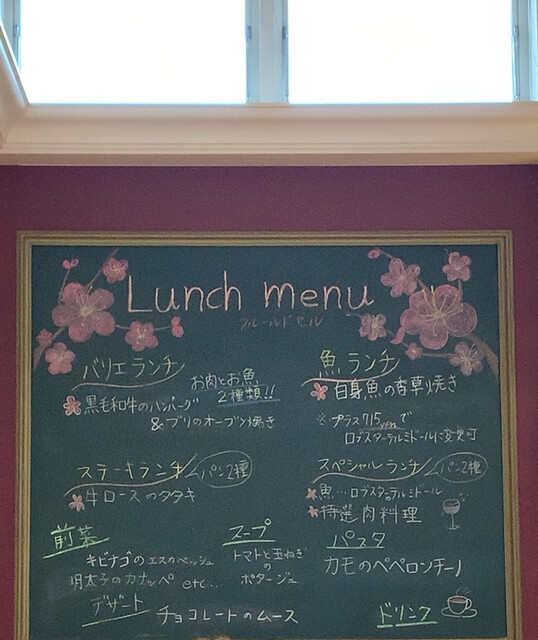 Lunch menu
フルールドセル
バリエランチ
お肉とお魚
2種類!!
黒毛和牛のハンバーグ
& ブリのオーブン焼き
魚ランチ
白身魚の香草焼き
※プラス715yenで
ロブスターテルミドールに変更可
ステーキランチ
パン2種
牛ロースのタタキ
スペシャルランチ
パン2種
魚…ロブスターのテルミドール
特選肉料理
前菜
キビナゴのエスカベッシュ
明太子のカナッペ etc...
スープ
トマトと玉ねぎ
の
ポタージュ
パスタ
カモのペペロンチーノ
デザート
チョコレートのムース
ドリンク